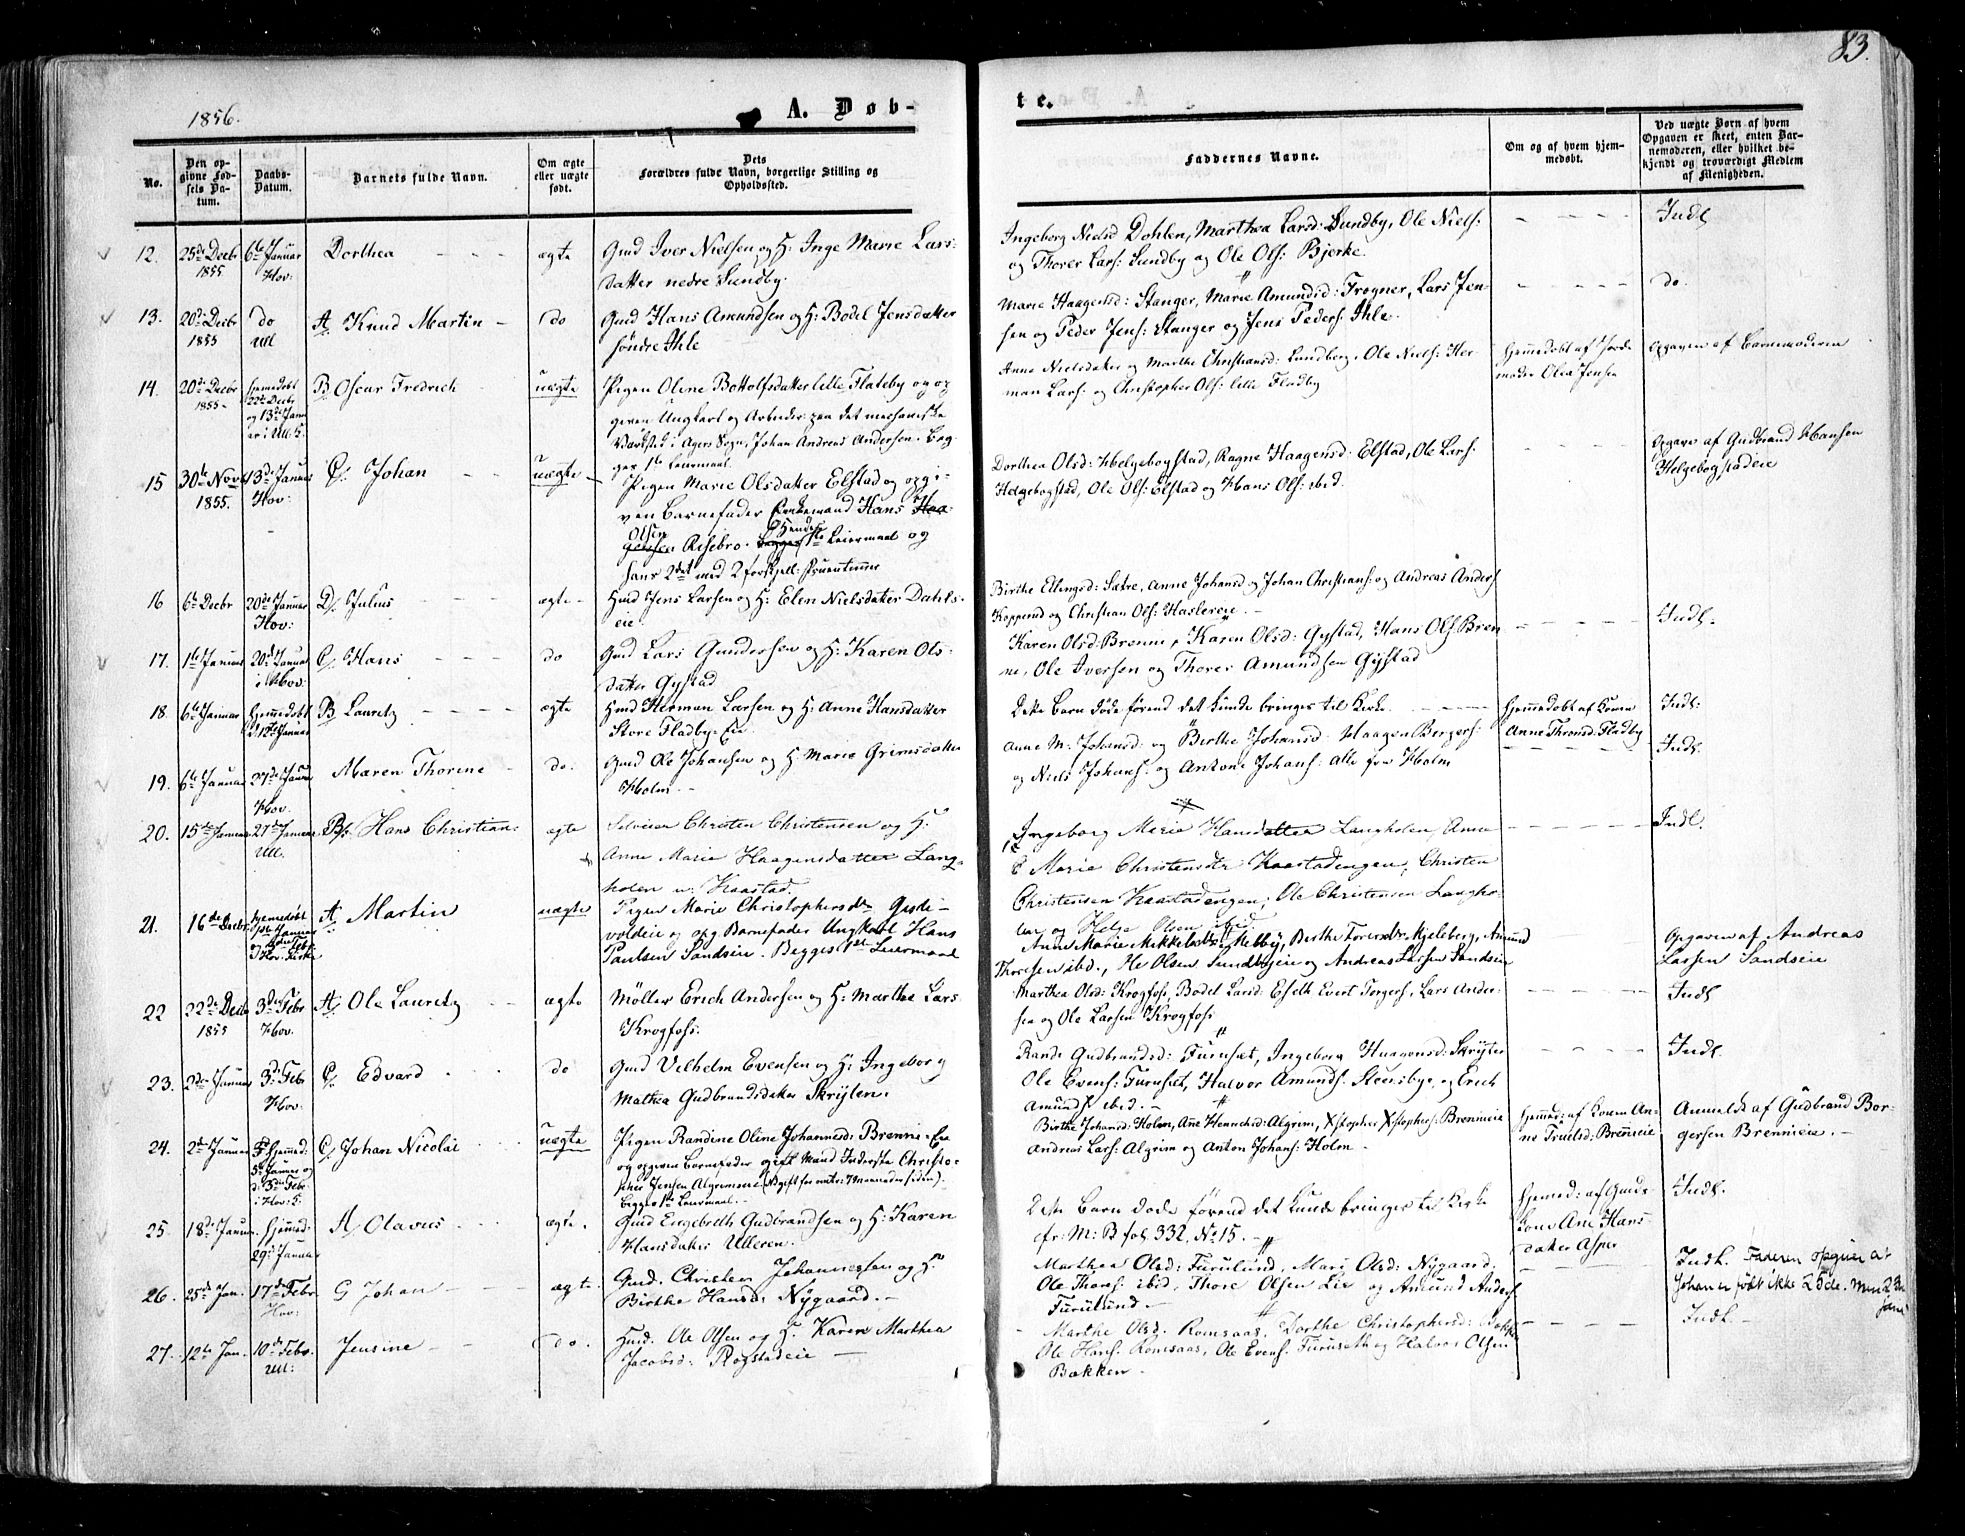 83.
1856.
A. Døb-
te.
No.
Den op-
givne Fød-
sels Da-
tum.
Daabs-
Datum.
Barnets fulde Navn.
Om ægte
eller uægte
født.
Dets
Forældres fulde Navn, borgerlige Stilling og
Opholdssted.
Faddernes Navne.
Om og af hvem hjem-
medøbt.
Ved uægte Børn af hvem
Opgaven er skeet, enten Bar-
nemoderen, eller hvilket be-
kjendt og troværdigt Medlem
af Menigheden.
12. 25de Decbr 6te Januar Dorthea - - - - ægte Gmd Iver Nielsen og H: Inge Marie Lars-
1855 Hov: datter nedre Sundby.
Ingeborg Nielsd Dohlen, Marthea Larsd: Sundby, Ole Niels:
og Thorer Lars: Sundby og Ole Ols: Bjerke.
- - - - Indl
13. 20de Decbr do A. Knud Martin - do Gmd Hans Amundsen og H: Bodel Jensdatter
1855 Ull søndre Ihle
Marie Haagensd: Stanger, Marie Amundsd: Trogner, Lars Jen-
sen og Peder Jens: Stanger og Jens Peders: Ihle.
- - - - do.
14. 20de Decbr hjemedøbt B Oscar Fredrich - uægte Pigen Oline Bottolfsdatter lille Flateby og op
1855 - 22de Decbr
og 13de Janu
ar i Ull: K.
given Ungkarl og Arbeider paa det mechaniske
Værksted i Agers Sogn, Johan Andreas Andersen. Beg-
ges 1ste Leiermaal.
Anne Nielsdatter og Marthe Christiansd: Lundberg, Ole Niels: Her-
man Lars: og Christopher Ols: lille Fladby
hjemmedøbt af Jorde
moder Olea Jensen
Opgaven af Barnemoderen
15 30te Novb 13de Januar C. Johan - - uægte - Pigen Marie Olsdatter Elstad og opgi-
1855. Hov: ven Barnefader Enkemand Hans Haa-
Olsen
gensen Risebro. Begges Hendes 1ste Leiermaal og
hans 2det med 2 forskjell: Fruentimmer
Dorthea Olsd: Helgebogstad, Ragne Haagensd: Elstad, Ole Lars:
Helgebogstad, Ole Ols: Elstad og Hans Ols: ibid.
Opgave af Gudbrand Hansen
Helgebogstadeie
16 6te Decbr 20de Januar D. Julius - - - ægte - Hmd Jens Larsen og H: Elen Nielsdatter Dahls-
Hov: eie.
Birthe Ellingsd: Sætre, Anne Johansd og Johan Christians: og Andreas Anders:
Kopperud og Christian Ols: Haslereie. -
- - - - Indl.
17. 1ste Januar 20de Januar C. Hans - - - do Gmd Lars Gundersen og H: Karen Ols-
i Hov: datter Gystad
Karen Olsd: Brenne, Karen Olsd: Gystad, Hans Ols: Bren
ne, Ole Iversen og Thorer Amundsen Gystad
18. 6te Januar hjemmedøbt B Lauretz - - - - ægte Hmd Herman Larsen og H: Anne Hansdatter
d. 12te Januar Store Fladby-Eie.
Dette Barn døde førend det kunde bringes til Kirke. - - -
hjemmedøbt af Konen
Anne Thronsd: Fladby
Indl:
19. 6te Januar 27de Januar Maren Thorine - do. Gmd Ole Johansen og H: Marie Grimsdatter
Hov. Holm. -
Anne M: Johansd: og Birthe Johansd. Haagen Bergers:
og Niels Johans: og Antone Johans: alle fra Holm
- - - - Indl.
20. 15de Januar 27de Januar B. Hans Christian: ægte Selveier Christen Christensen og H.
Ull. Anne Marie Haagensdatter Lang-
holen u. Kaastad.
Ingeborg Marie Hansdatter Langholen, Anne
E Marie Christensdtr Kaastadengen, Christen
Christensen Kaastadengen, Ole Christensen Langho-
len og Helge Olsen ibid.
- - - - Indl.
21. 16de Decbr hjemedøbt A. Martin uægte Pigen Marie Christophersdtr Gude-
voldeie og opg Barnefader Ungkarl Hans
Paulsen Sandseie. Begges 1ste Leiermaal
Januar
Hov. Kirke
Ane Marie Mikkelsdtr Melby, Birthe Toresdtr Mjeleberg, Amund
Thoresen ibd., Ole Olsen Sundbyeie og Andreas Larsen Sandseie
Opgaven af Andreas
Larsen Sandseie
22 22de Decb 3de Febr A. Ole Lauretz - - ægte Møller Erich Andersen og H: Marthe Lars
1855 Hov. Krogfoss.
Marthea Olsd: Krogfoss, Bodel Larsd: Eseth Evert Torgers:, Lars Ander-
sen og Ole Larsen Krogfoss
- - - - Indl
23. 2den Januar 3de Febr C. Edvard - - do Gmd Vilhelm Evensen og H: Ingeborg
Hov. Mathea Gudbrandsdatter Skrijten.
Rande Gudbrandsd: Furuset, Ingeborg Haagensd: Skrijten
Ole Evens: Furuset, Halvor Amunds: Steensbye, og Erich
Amunds: ibid. -
- - - - Indl.
24. 2de Januar Hjemmed: C. Johan Nicolai uægte Pigen Randine Oline Johannesd: Brenne-Eie
5te Januar og
d: 3de Febr.
i Hov: K.
og opgiven Barnefader gift Mand Inderste Christo-
pher Jensen Algrimseie. (Nygift for omtr: 7 Maaneder siden).
begges 1ste Leiermaal. -
Birthe Johansd: Holm, Ane Hennechsd: Algrim, Xstopher Xstophers: Brenneie
Andreas Lars: Algrim og Anton Johans: Holm -
hjemmed: af Konen An-
ne Truelsd: Brenneie
Anmeldt af Gudbrand Bor-
gersen Brenneie. -
25. 18de Januar. hjemmed: A. Olavus - - ægte. Gmd Engebreth Gudbrandsen og H: Karen
29de Januar Hansdatter Ulleren. -
Dette Barn døde førend det kunde bringes til Kirke
cfr: M: B fol. 332, No 15. -
hjemmed: af Gmds-
kone Ane Hans-
datter Asper
Indl.
26. 25de Jan. 17de Febr. G Johan - - ægte. Gmd. Christen Johannessen og H:
Hov: Birthe Hansd: Nygaard. -
Marthea Olsd: Furulund, Mari Olsd: Nygaard,
Ole Thors: ibid, Thore Olsen Lie og Amund Anders:
Furulund. -
Indl. Faderen opgiver at
Johan er født ikke 25de. Men 23de
Jan.
27. 12te Jan. 10de Febr. Jensine - - do. Hmd. Ole Olsen og H. Karen Marthea
Ull: Jacobsd: Rogstadeie -
Marthe Olsd. Romsaas. Dorthe Christophersd: Bakk
Ole Hans: Romsaas, Ole Evens: Furuseth og Halvor Olsen
Bakken -
- - - - Indl. -